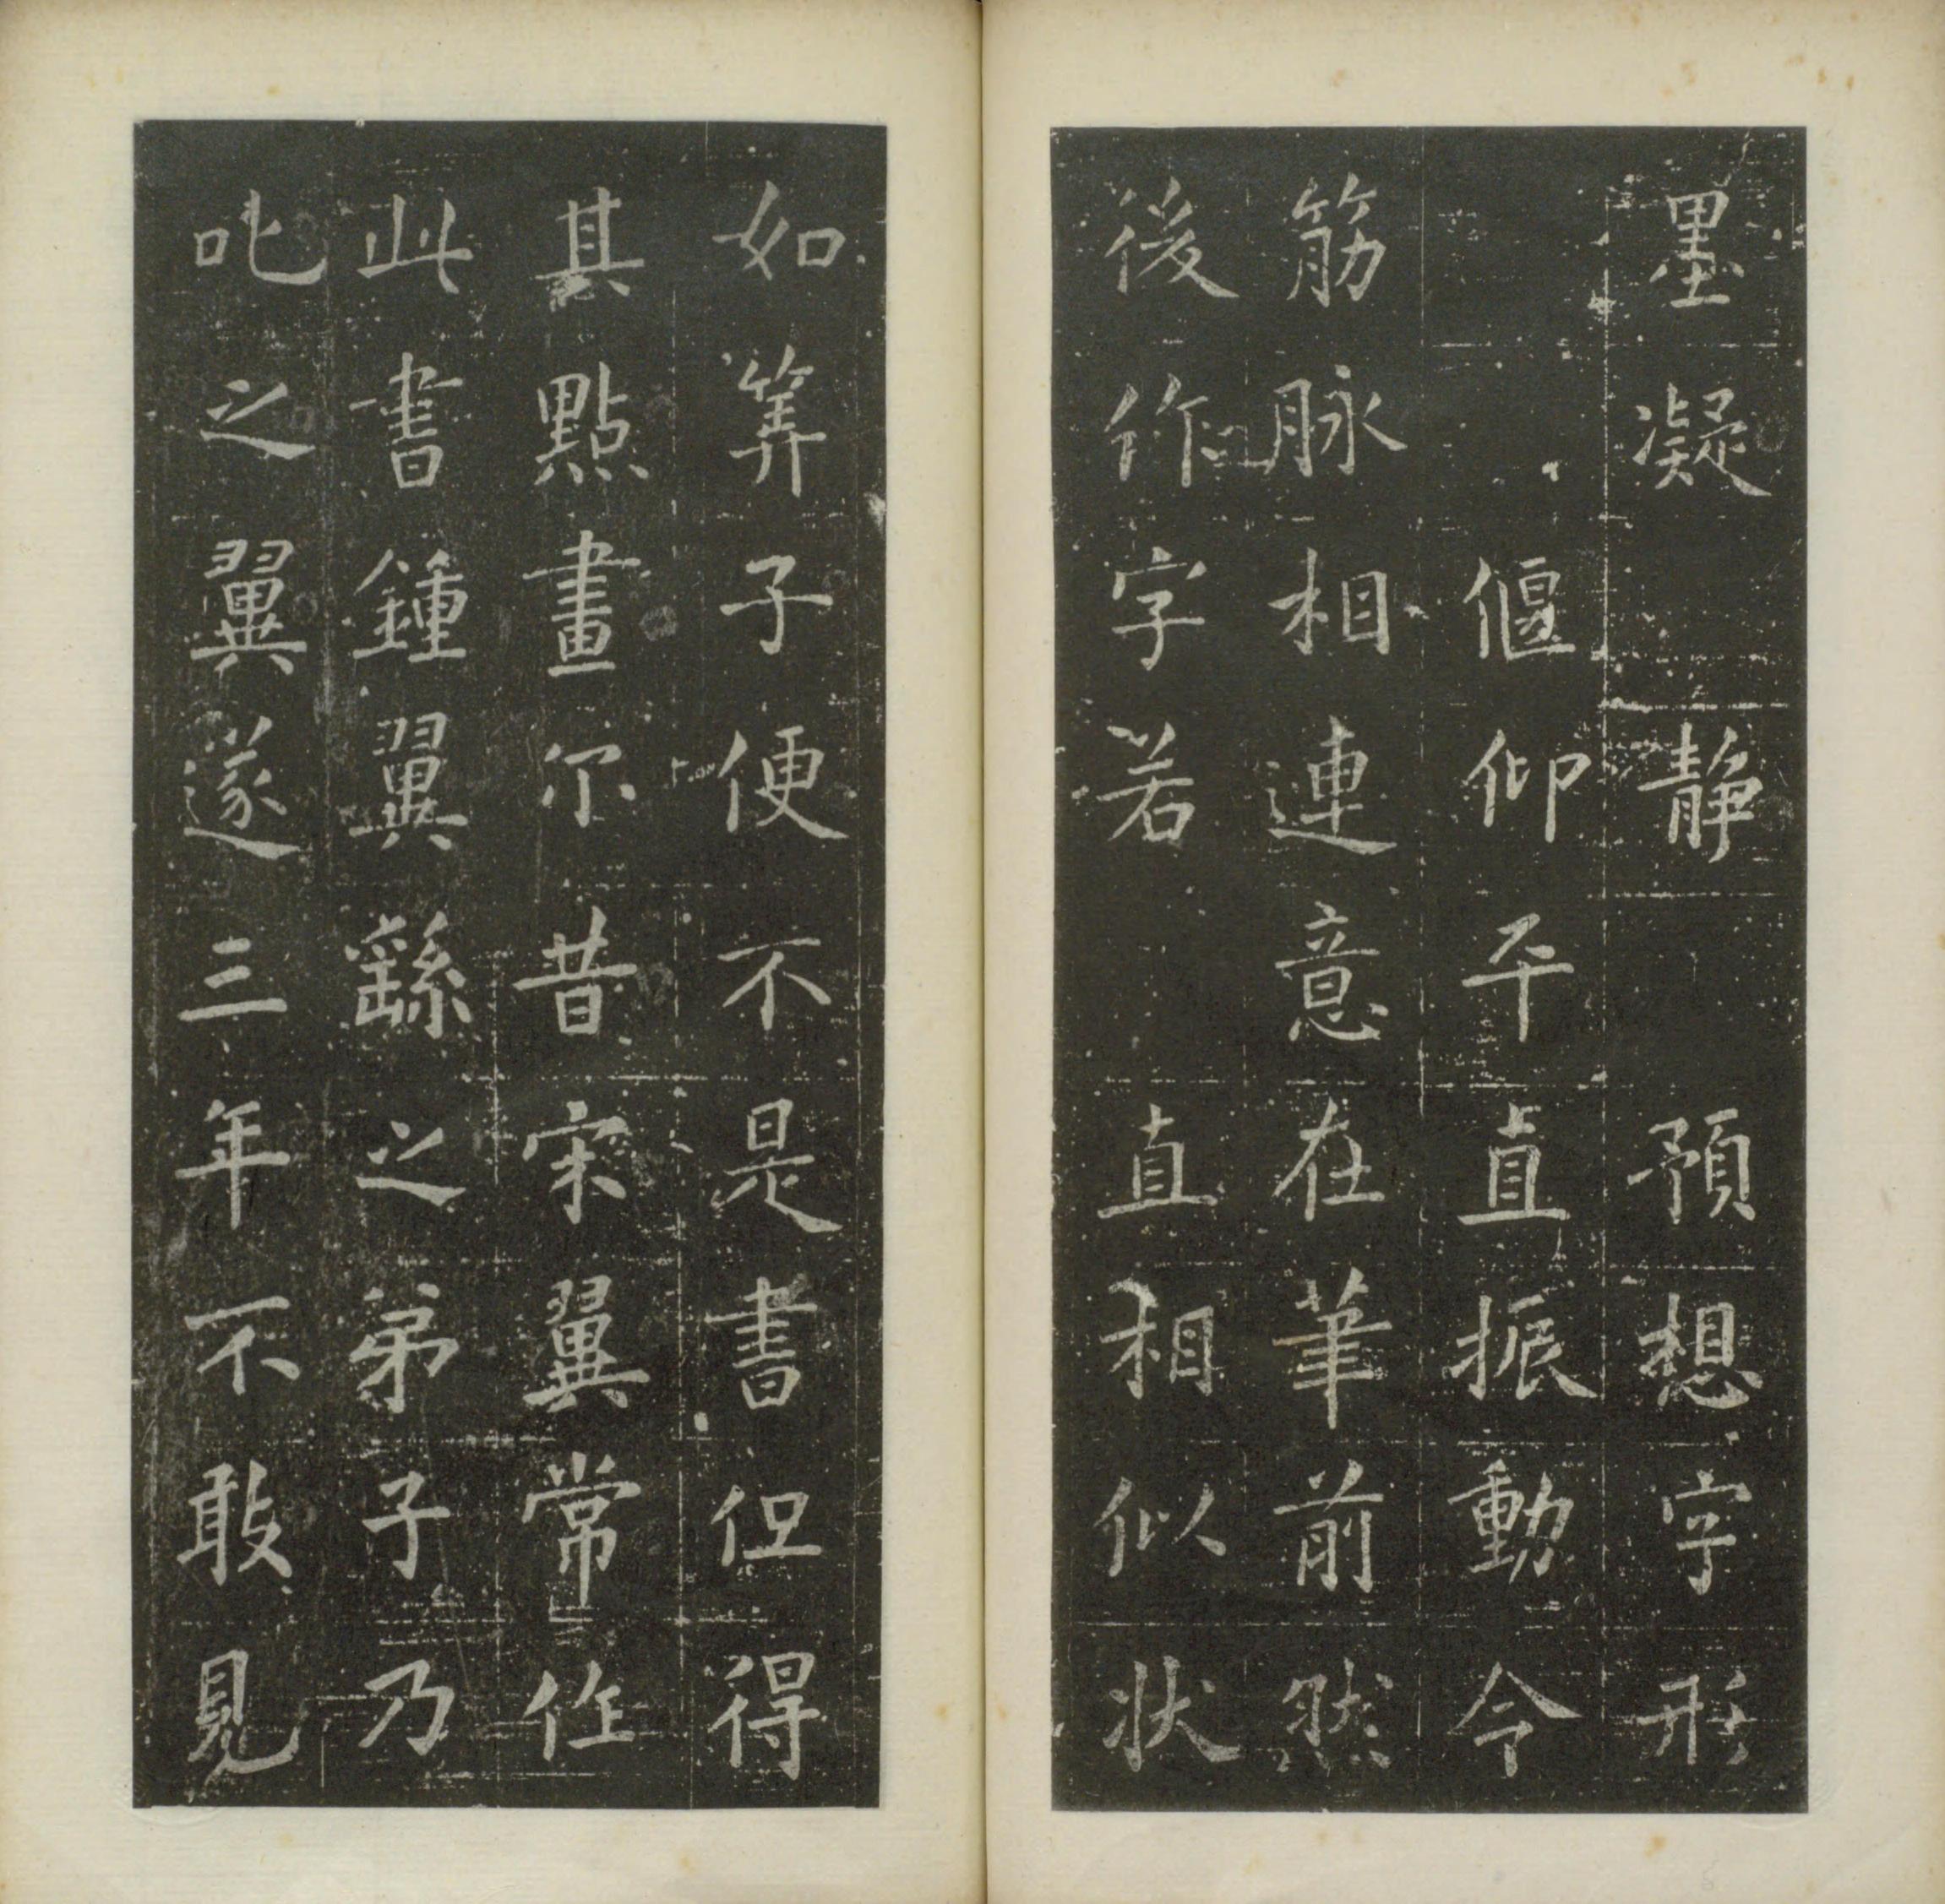 墨凝静預想字形
偃仰平直振動令
筋脉相連意在筆前然
後作字若直相似状
如筭子便不是書但得
其點畫尔昔宋翼常作
此書鍾翼繇之弟子乃
叱之翼遂三年不敢見